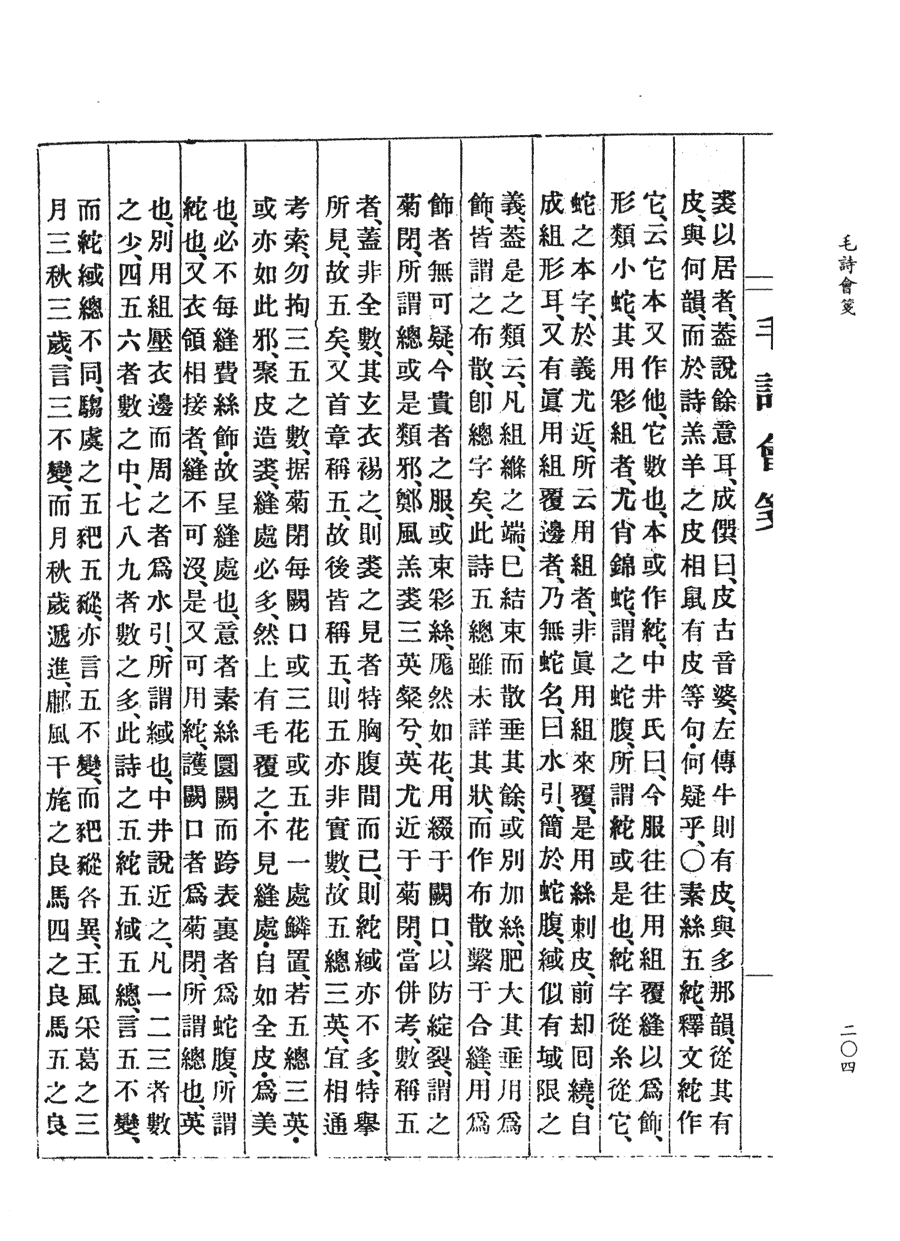 毛詩會箋
二〇四
毛詩會箋
裘以居者、葢說餘意耳、成僎曰、皮古音婆、左傳牛則有皮、與多那韻、從其有
皮、與何韻、而於詩羔羊之皮相鼠有皮等句、何疑乎、〇素絲五紽、釋文紽作
它、云它本又作他、它數也、本或作紽、中井氏曰、今服往往用組覆縫以爲飾、
形類小蛇、其用彩組者、尤肖錦蛇、謂之蛇腹、所謂紽或是也、紽字從糸從它、
蛇之本字、於義尤近、所云用組者、非眞用組來覆、是用絲刺皮、前却囘繞、自
成組形耳、又有眞用組覆邊者、乃無蛇名、曰水引、簡於蛇腹、緎似有域限之
義、葢是之類云、凡組絛之端、已結束而散垂其餘、或別加絲、肥大其垂用爲
飾、皆謂之布散、卽總字矣、此詩五總雖未詳其狀、而作布散繫于合縫、用爲
飾者無可疑、今貴者之服、或束彩絲、厖然如花、用綴于闕口、以防綻裂、謂之
菊閉、所謂總或是類邪、鄭風羔裘三英粲兮、英尤近于菊閉、當併考、數稱五
者、蓋非全數、其玄衣裼之、則裘之見者特胸腹間而已、則紽緎亦不多、特擧
所見、故五矣、又首章稱五、故後皆稱五、則五亦非實數、故五總三英、宜相通
考索、勿拘三五之數、据菊閉每闕口或三花或五花一處鱗置、若五總三英、
或亦如此邪、聚皮造裘、縫處必多、然上有毛覆之、不見縫處、自如全皮、爲美
也、必不每縫費絲飾、故呈縫處也、意者素絲圜闕而跨表裏者爲蛇腹、所謂
紽也、又衣領相接者、縫不可沒、是又可用紽、護闕口者爲菊閉、所謂總也、英
也、別用組壓衣邊而周之者爲水引、所謂緎也、中井說近之、凡一二三者數
之少、四五六者數之中、七八九者數之多、此詩之五紽五緎五總、言五不變、
而紽緎總不同、騶虞之五豝五豵、亦言五不變、而豝豵各異、王風采葛之三
月三秋三歲、言三不變、而月秋歲遞進、鄘風干旄之良馬四之良馬五之良